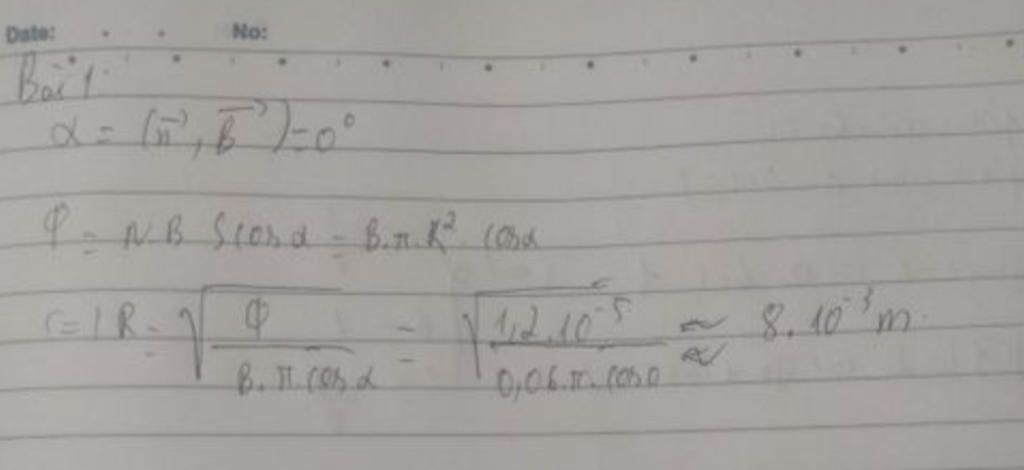 Date: No:
Bài 1:
α = (n⃗, B⃗) = 0°
Φ = N.B S cos α = B.π.R². cos α
(=) R = √(Φ / B.π.cos α) = √(1,2.10⁻⁵ / 0,06.π.cos 0) ≈ 8.10⁻³ m.